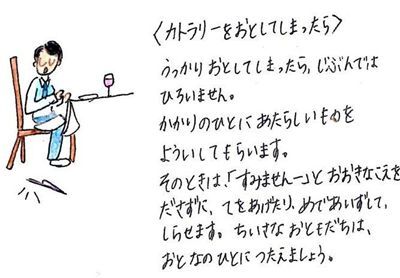 〈カトラリーをおとしてしまったら〉
うっかりおとしてしまったら、じぶんでは
ひろいません。
かかりのひとにあたらしいものを
よういしてもらいます。
そのときは、「すみませんー」とおおきなこえを
ださずに、てをあげたり、めであいずして、
しらせます。ちいさなおともだちは、
おとなのひとにつたえましょう。